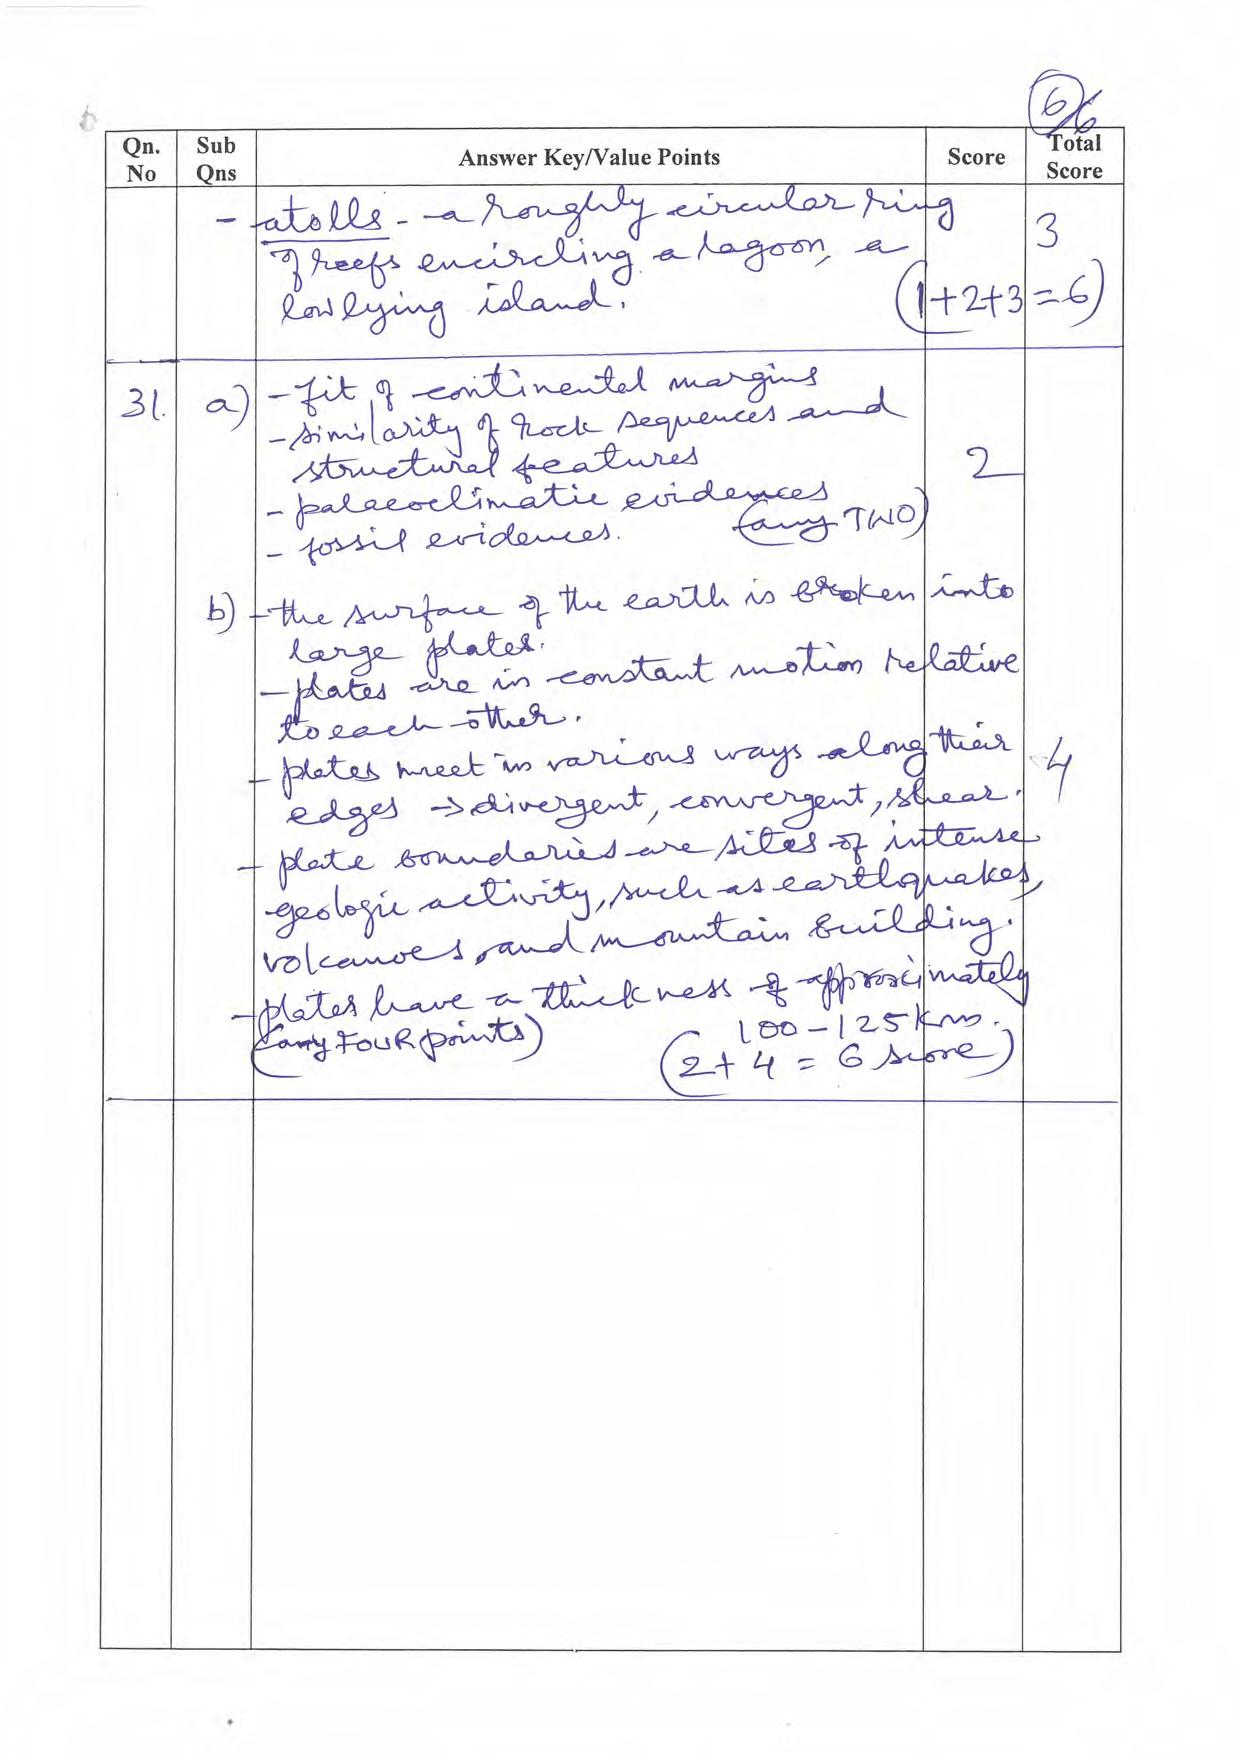 6/6
Qn. No Sub Qns Answer Key/Value Points Score Total Score
- atolls - a roughly circular ring
of reefs encircling a lagoon, a
low lying island.
3
(1+2+3=6)
31. a) - fit of continental margins
- similarity of rock sequences and
structural features
2
- palaeoclimatic evidences
- fossil evidences. (any TWO)
b) - the surface of the earth is broken into
large plates.
- plates are in constant motion relative
to each other.
- plates meet in various ways along their
edges → divergent, convergent, shear.
4
- plate boundaries are sites of intense
geologic activity, such as earthquakes,
volcanoes, and mountain building.
- plates have a thickness of approximately
100-125 Km.
(any FOUR points)
(2+4 = 6 score)